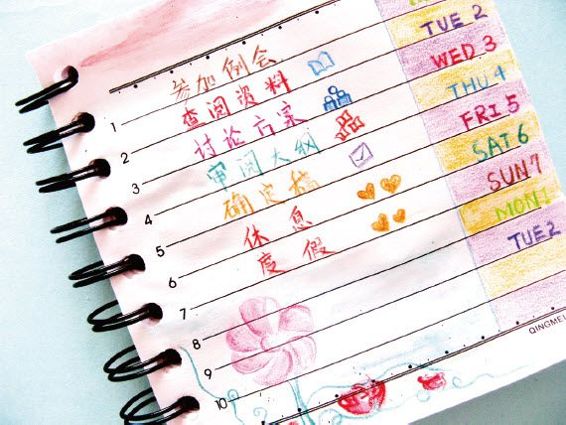 1 参加例会
2 查阅资料 TUE 2
3 讨论方案 WED 3
4 审阅大纲 THU 4
5 确定稿 FRI 5
6 休息 SAT 6
7 度假 SUN 7
8 MON 1
9 TUE 2
10
QINGMEI